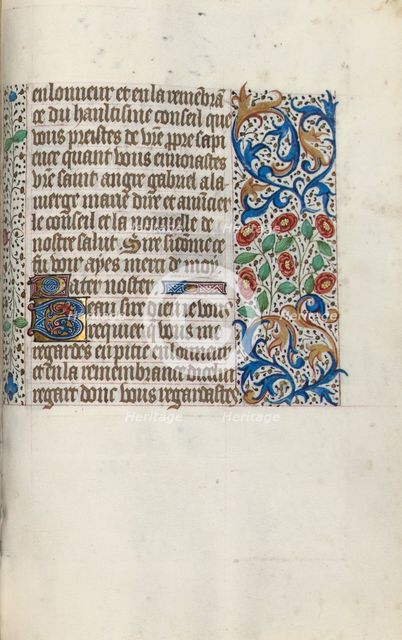 en lonneur et en la remembra
ce du haultisme conseil que
vous preistes de vre ppre sapi
ence quant vous envoiastes
vre saint angre gabriel a la
vierge marie dire et anuncer
le conseil et la nouvelle de
nostre salut. Sire si come ce
fu voir ayes merci de moy
Pater noster
Beau sire dieu je vous
requier q vous me
regardes en pitie en lonneur
et en la remembrance du dulz
regart dont vous regardastes
Heritage
Heritage
Heritage
Heritage